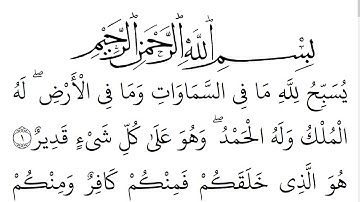 بِسْمِ اللَّهِ الرَّحْمَٰنِ الرَّحِيمِ
يُسَبِّحُ لِلَّهِ مَا فِي السَّمَاوَاتِ وَمَا فِي الْأَرْضِ ۖ لَهُ
الْمُلْكُ وَلَهُ الْحَمْدُ ۖ وَهُوَ عَلَىٰ كُلِّ شَيْءٍ قَدِيرٌ ۝١
هُوَ الَّذِي خَلَقَكُمْ فَمِنْكُمْ كَافِرٌ وَمِنْكُمْ